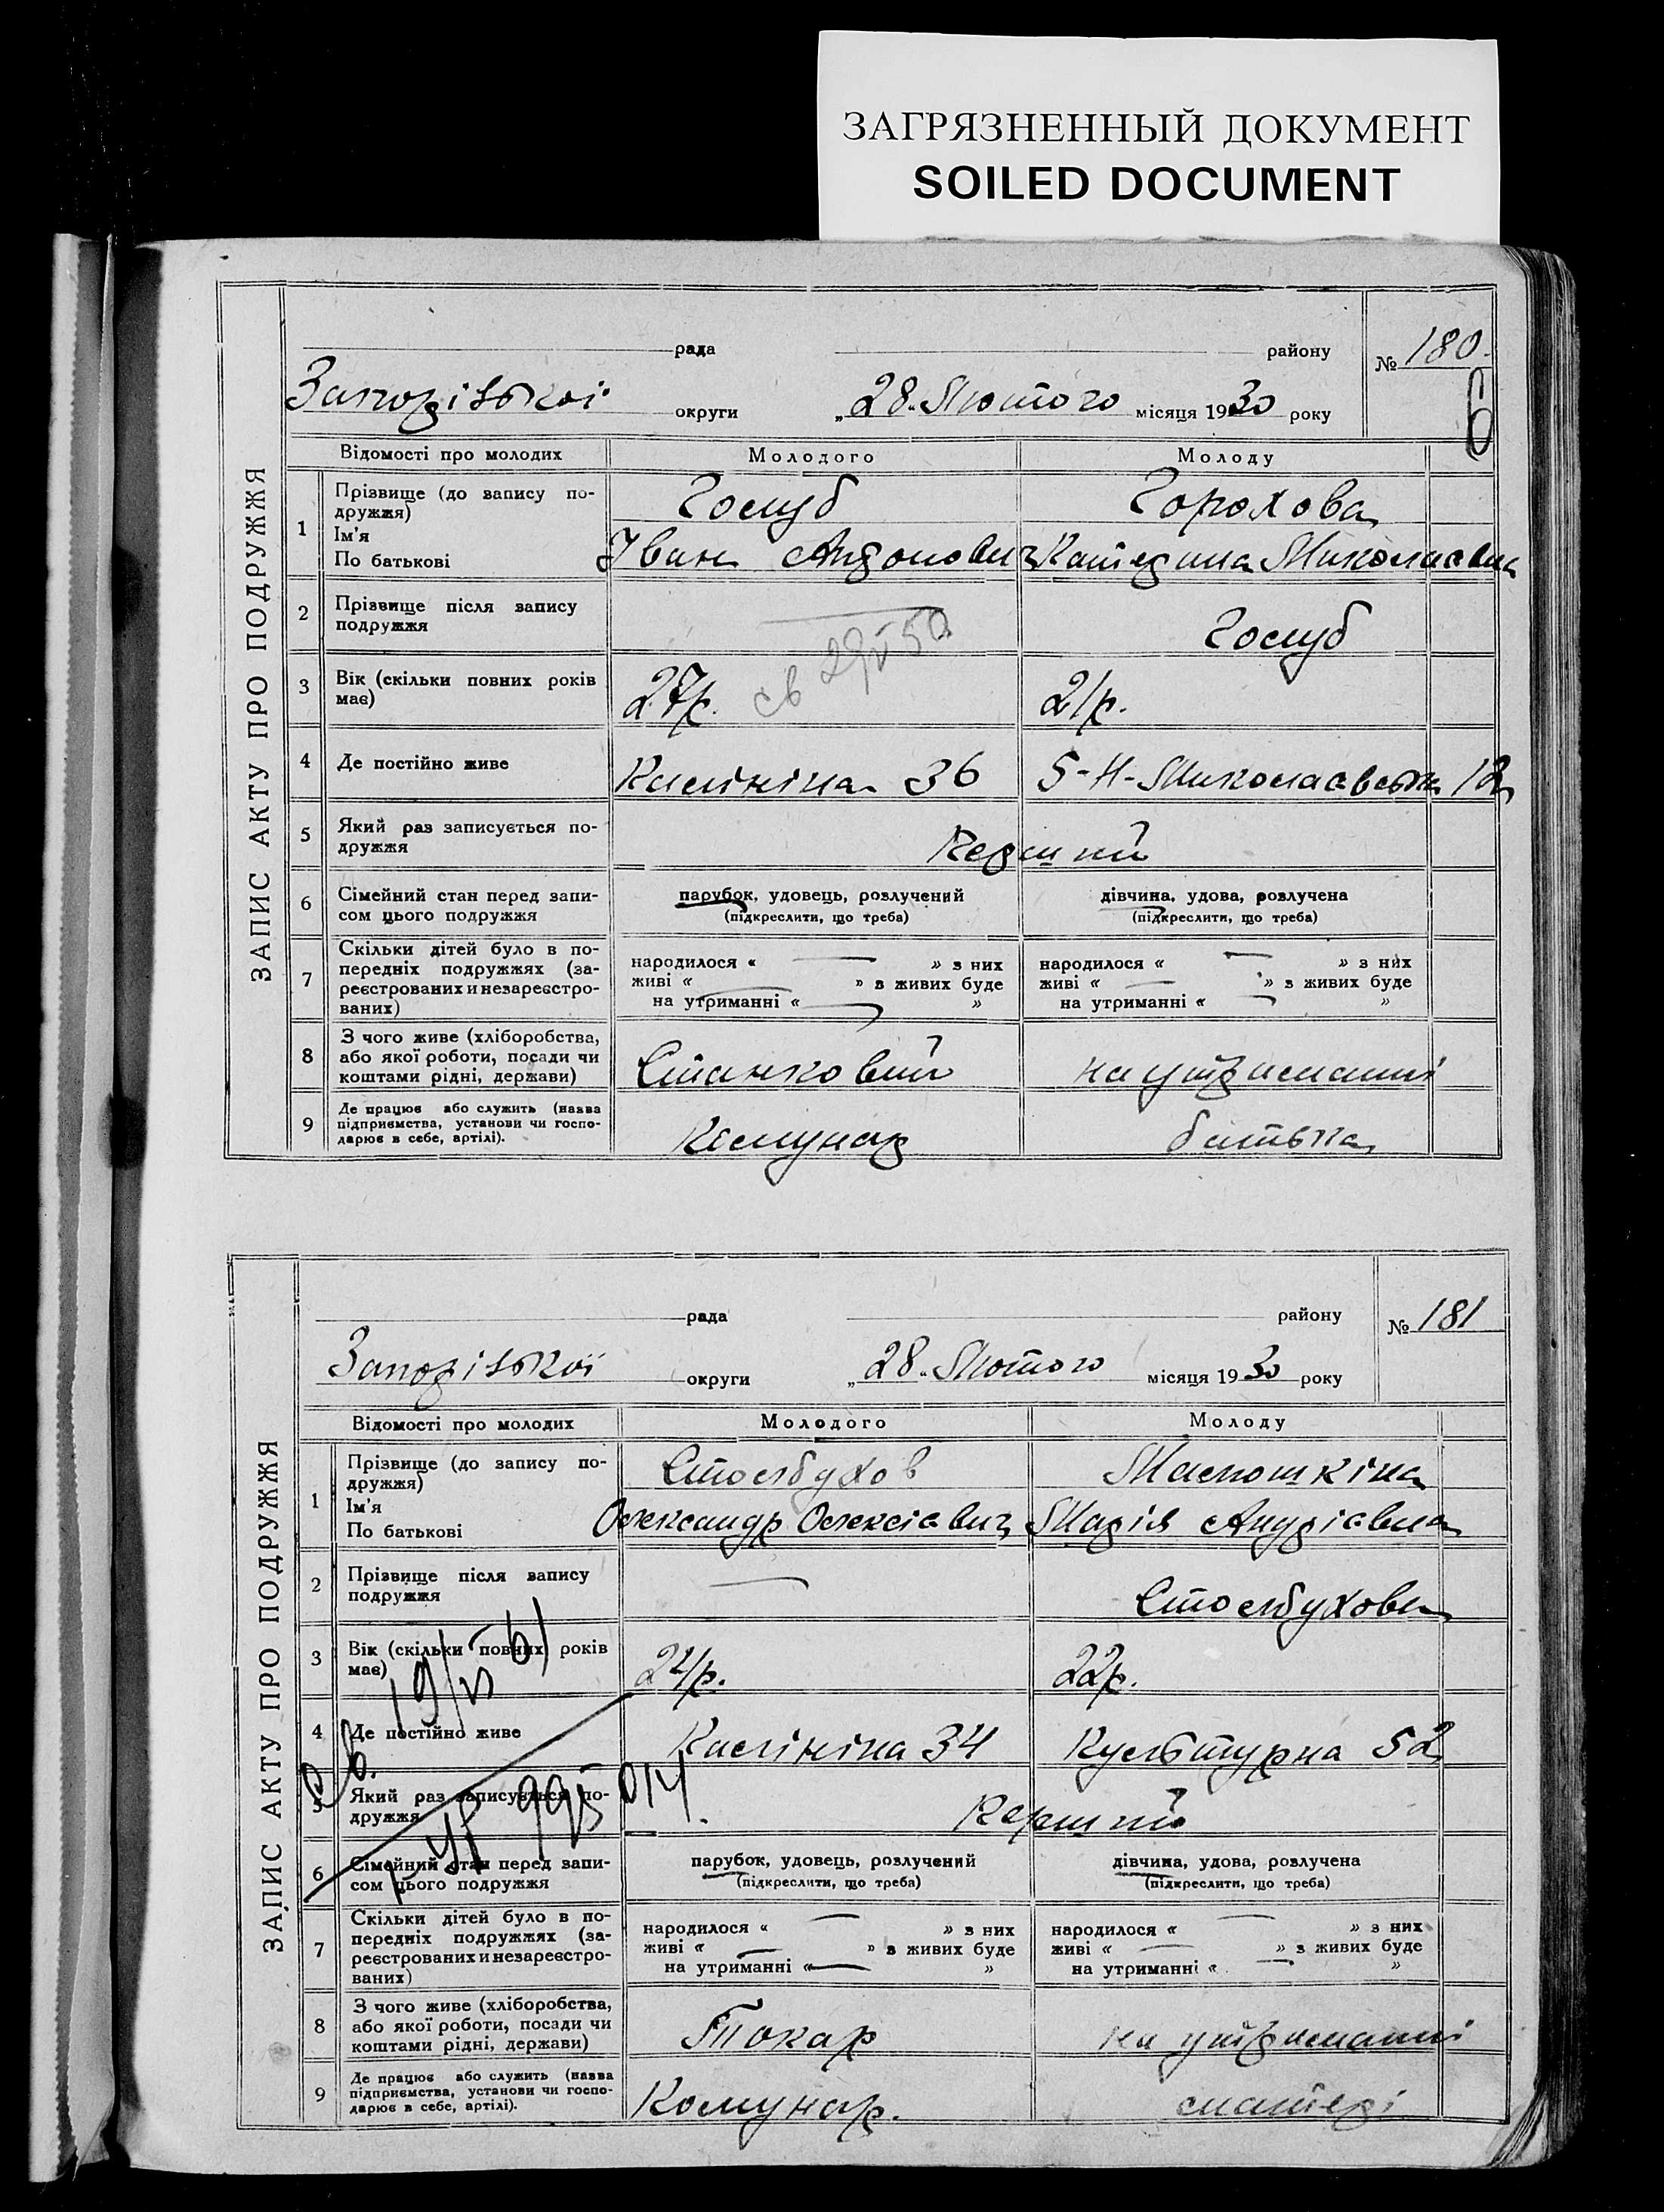 ЗАГРЯЗНЕННЫЙ ДОКУМЕНТ
SOILED DOCUMENT
ЗАПИС АКТУ ПРО ПОДРУЖЖЯ
рада району № 180
Запорізької округи „28" Лютого місяця 1930 року
6
Відомості про молодих Молодого Молоду
1 Прізвище (до запису по-
дружжя)
Ім'я
По батькові
Голуб Горохова
Іван Антонович Катерина Миколаєвна
2 Прізвище після запису
подружжя
Голуб
3 Вік (скільки повних років
має)
27р. 21р.
св 29/V 50
4 Де постійно живе
Калініна 36 5-Н-Миколаєвська 12
5 Який раз записується по-
дружжя
Перший
6 Сімейний стан перед запи-
сом цього подружжя
парубок, удовець, розлучений
(підкреслити, що треба)
дівчина, удова, розлучена
(підкреслити, що треба)
7 Скільки дітей було в по-
передніх подружжях (за-
реєстрованих и незареєстро-
ваних)
народилося « — » з них
живі « — » з живих буде
на утриманні « — »
народилося « — » з них
живі « — » з живих буде
на утриманні « — »
8 З чого живе (хліборобства,
або якої роботи, посади чи
коштами рідні, держави)
Станковий на утриманні
9 Де працює або служить (назва
підприємства, установи чи госпо-
дарює в себе, артілі).
Комунар батька
ЗАПИС АКТУ ПРО ПОДРУЖЖЯ
рада району № 181
Запорізької округи „28" Лютого місяця 1930 року
Відомості про молодих Молодого Молоду
1 Прізвище (до запису по-
дружжя)
Ім'я
По батькові
Столбухов Малюшкіна
Олександр Олексієвич Марія Андрієвна
2 Прізвище після запису
подружжя
— Столбухова
3 Вік (скільки повних років
має)
24р. 22р.
4 Де постійно живе
Калініна 34 Культурна 52
5 Який раз записується по-
дружжя
Перший
6 Сімейний стан перед запи-
сом цього подружжя
парубок, удовець, розлучений
(підкреслити, що треба)
дівчина, удова, розлучена
(підкреслити, що треба)
7 Скільки дітей було в по-
передніх подружжях (за-
реєстрованих и незареєстро-
ваних)
народилося « — » з них
живі « — » з живих буде
на утриманні « — »
народилося « — » з них
живі « — » з живих буде
на утриманні « — »
8 З чого живе (хліборобства,
або якої роботи, посади чи
коштами рідні, держави)
Токар на утриманні
9 Де працює або служить (назва
підприємства, установи чи госпо-
дарює в себе, артілі).
Комунар. матері